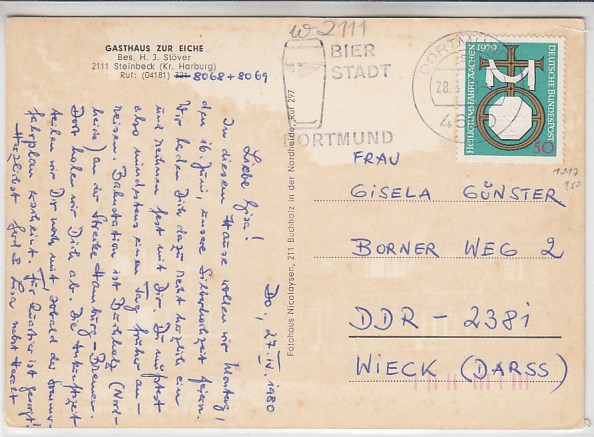 GASTHAUS ZUR EICHE
Bes. H. J. Stöver
2111 Steinbeck (Kr. Harburg)
Ruf: (04181) 121 8068 + 8069
W 2111
BIER
STADT
DORTMUND
DORTMUND
28.
46
1979
HEILIGTUMSFAHRT AACHEN
DEUTSCHE BUNDESPOST
50
Do, 27. IV. 1980
Liebe Gisa!
In diesem Hause wollen wir Montag,
den 16. Juni, unsere Silberhochzeit feiern.
Wir laden Dich dazu recht herzlich ein
und rechnen fest mit Dir. Du müßtest
also mindestens einen Tag früher an-
reisen. Bahnstation ist Buchholz (Nord-
heide) an der Strecke Hamburg-Bremen.
Dort holen wir Dich ab. Die Ankunftszeit
teilen wir Dir noch mit sobald der Sommer-
fahrplan erscheint. Für Quartier ist gesorgt!
Herzlichst Gert & Lisa nebst
Fotohaus Nicolaysen, 211 Buchholz in der Nordheide, Ruf 297
FRAU
GISELA GÜNSTER
BORNER WEG 2
DDR - 2381
WIECK (DARSS)